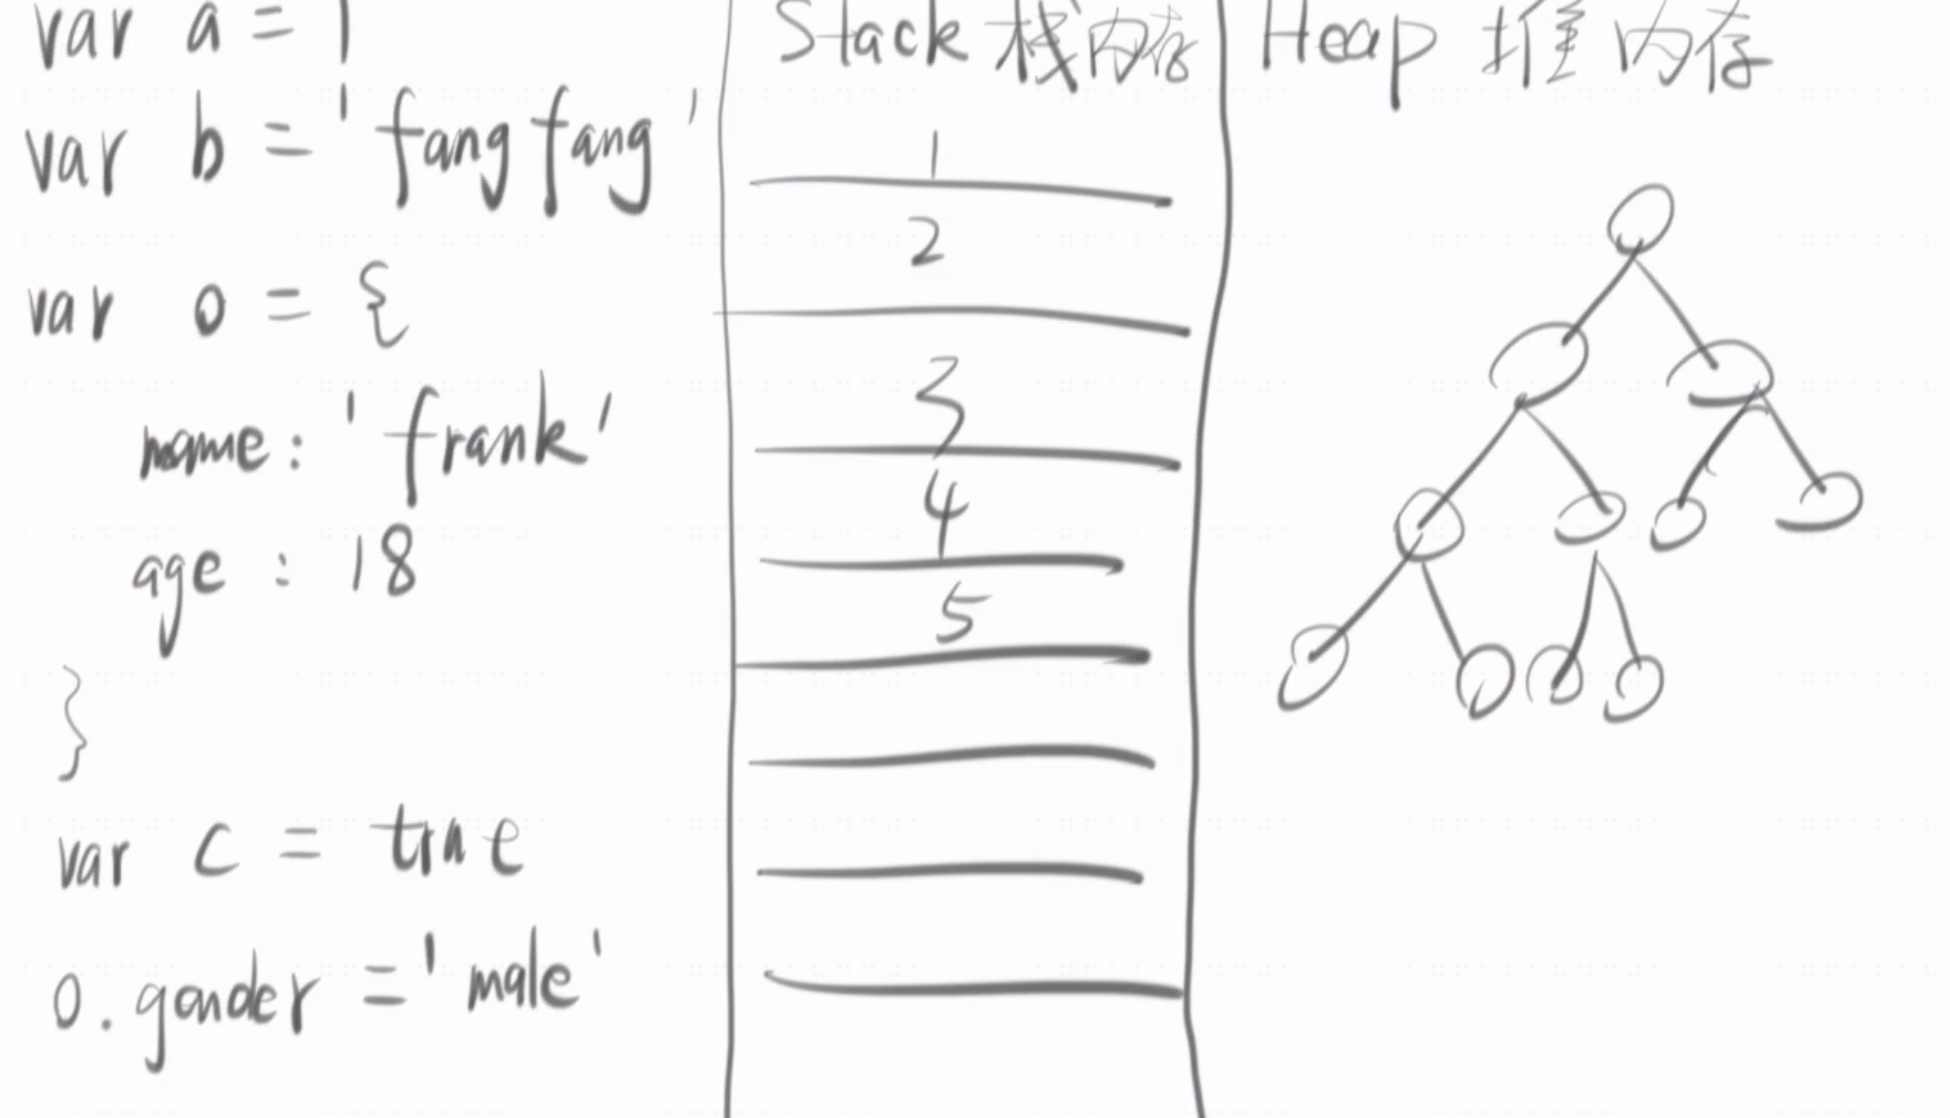 var a = 1
var b = 'fangfang'
var o = {
name: 'frank'
age : 18
}
var c = true
o.gender = 'male'
Stack 栈内存
1
2
3
4
5
Heap 堆内存